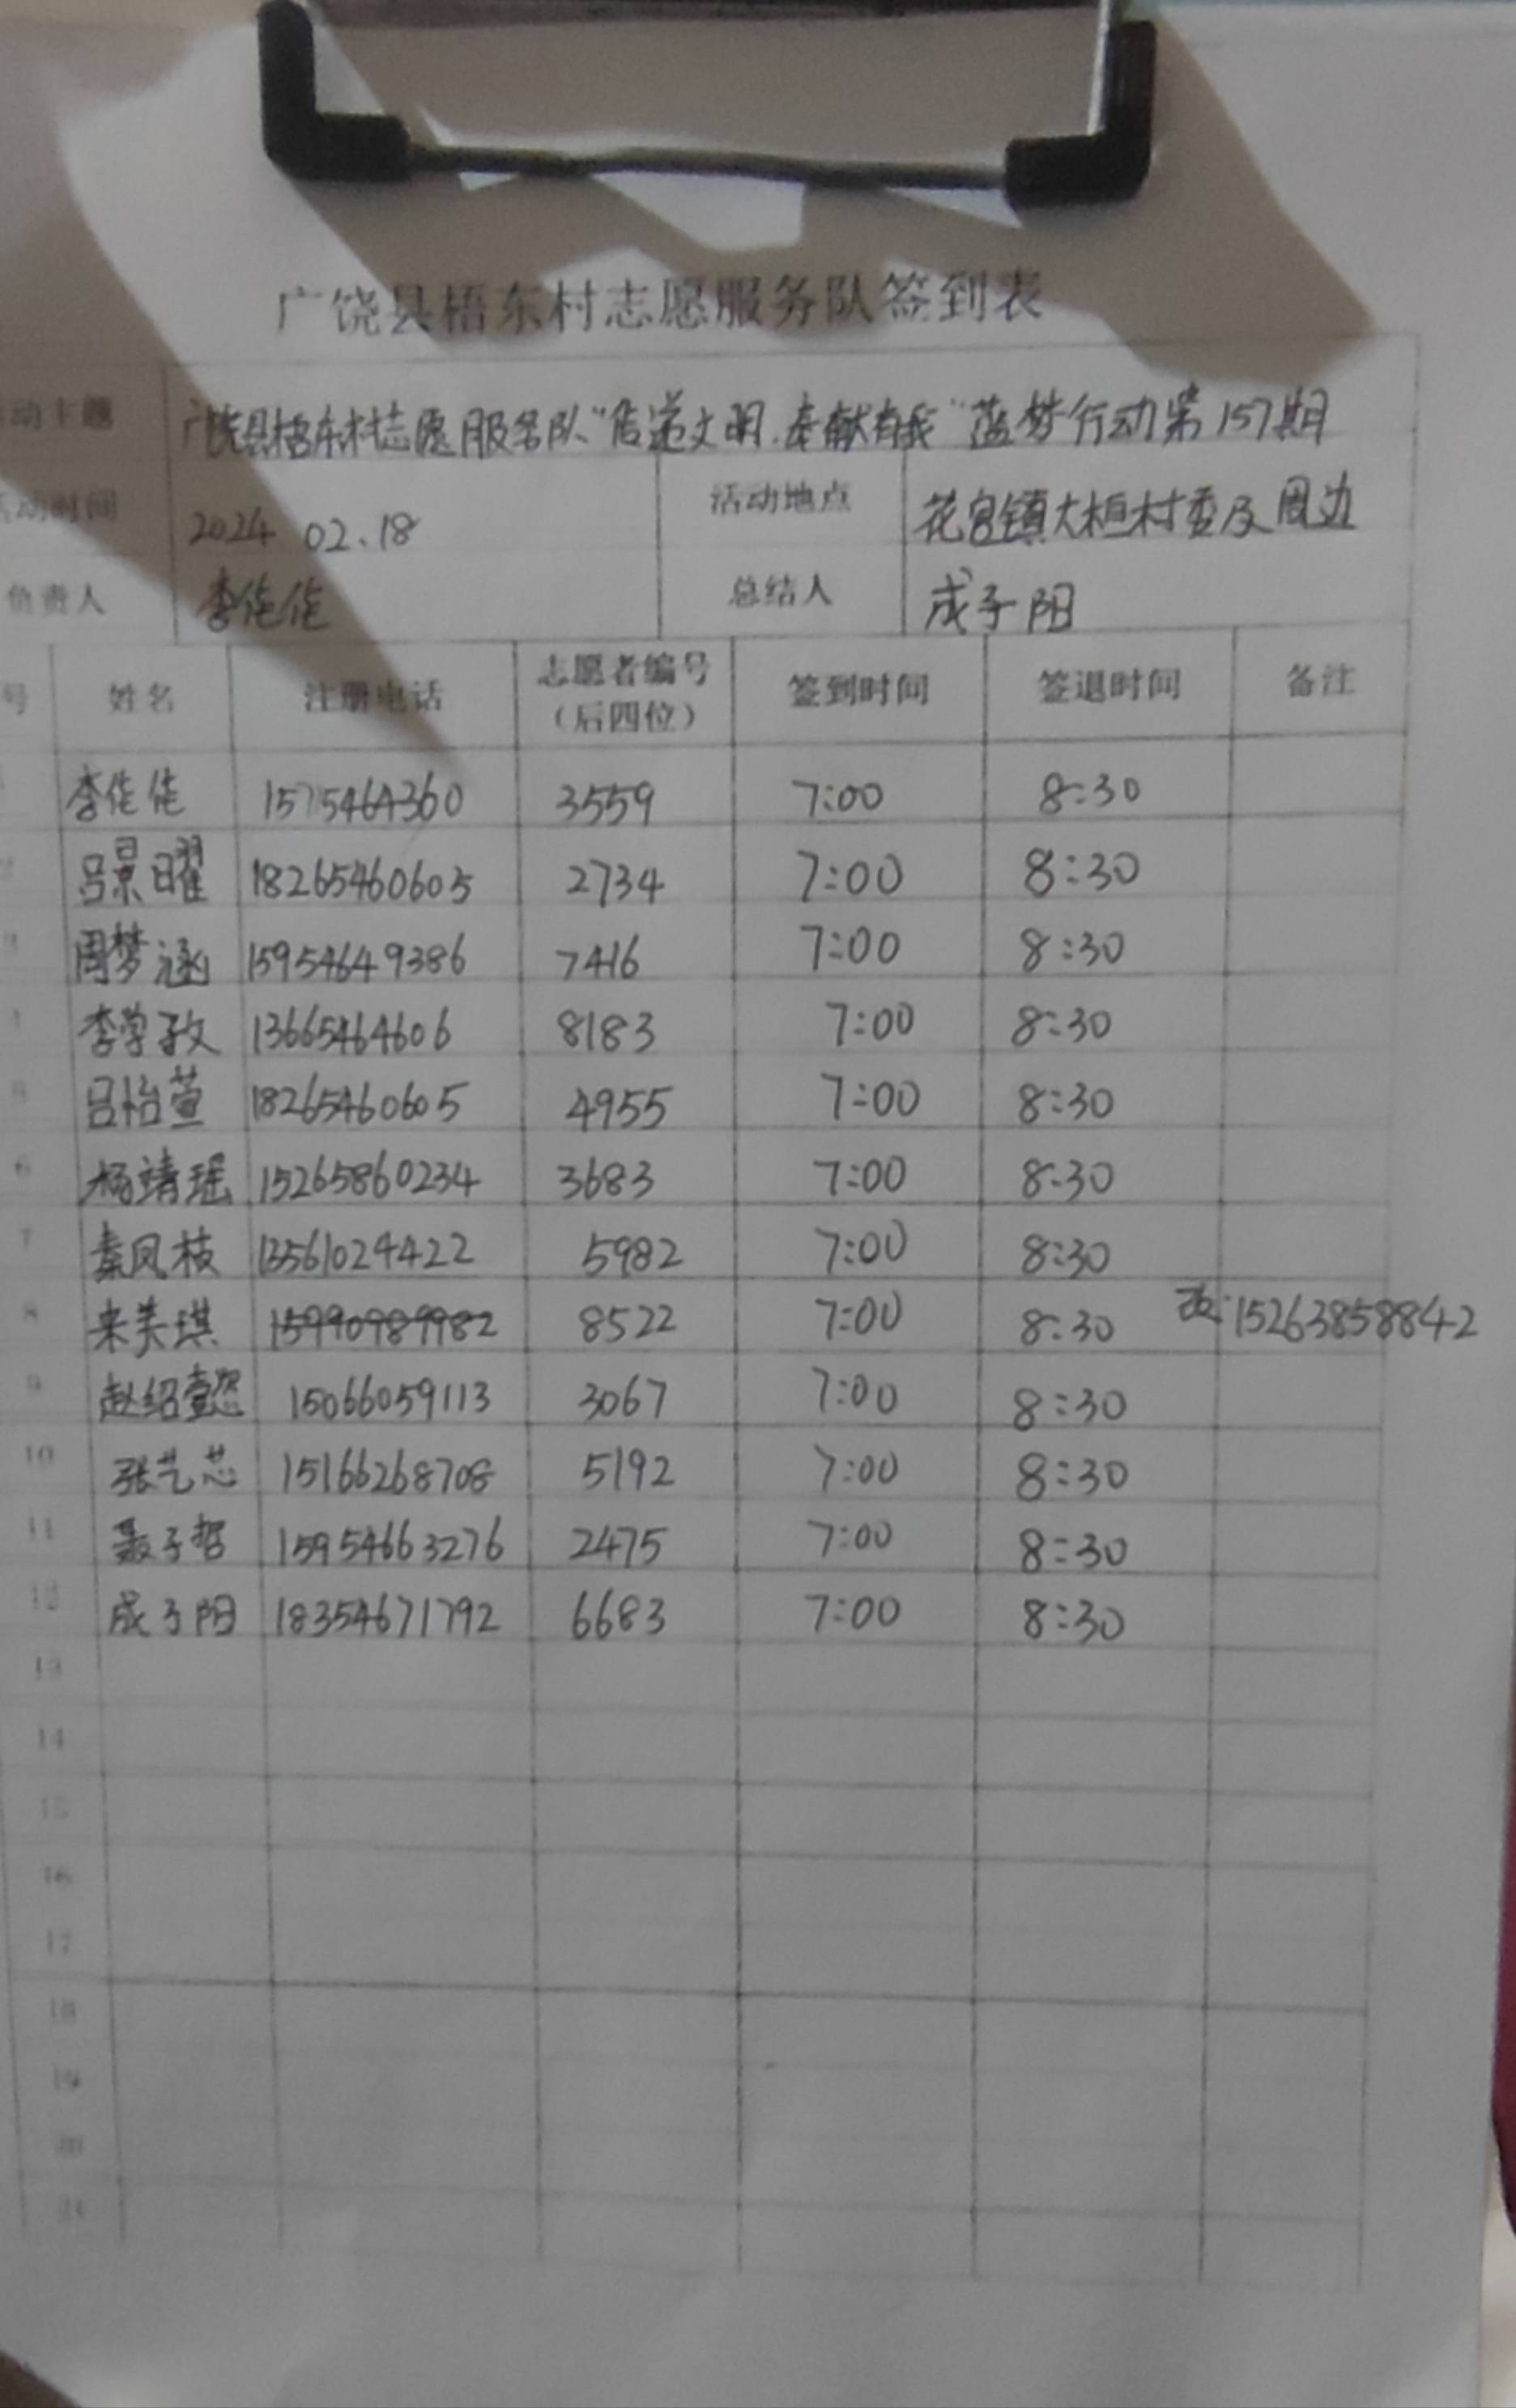 广饶县梧东村志愿服务队签到表
动主题 广饶县梧东村志愿服务队“传递文明.奉献有我”蓝梦行动第157期
活动时间 2024 02.18 活动地点 花官镇大桓村委及周边
负责人 李佳佳 总结人 成子阳
号 姓名 注册电话 志愿者编号 签到时间 签退时间 备注
（后四位）
李佳佳 1575464360 3559 7:00 8:30
吕景曜 18265460605 2734 7:00 8:30
周梦涵 15954649386 7416 7:00 8:30
李学孜 13665464606 8183 7:00 8:30
吕怡萱 18265460605 4955 7:00 8:30
6 杨靖瑶 15265860234 3683 7:00 8:30
7 秦凤枝 13561024422 5982 7:00 8:30
8 来美琪 15990989982 8522 7:00 8:30 改:15263858842
9 赵绍懿 15066059113 3067 7:00 8:30
10 张艺芯 15166268708 5192 7:00 8:30
11 聂子哲 15954663276 2475 7:00 8:30
12 成子阳 18354671792 6683 7:00 8:30
13
14
15
16
17
18
19
20
21